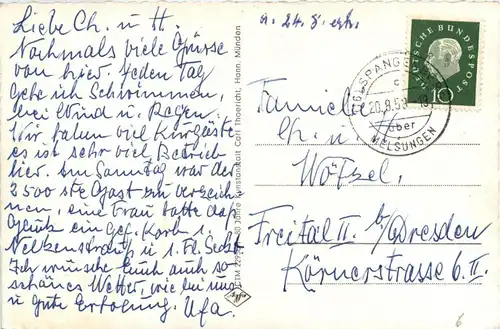 Liebe Ch. u. H.
Nochmals viele Grüsse
von hier. Jeden Tag
gehe ich Schwimmen,
bei Wind u. Regen.
Wir haben viel Kurgäste
es ist sehr viel Betrieb
hier. Am Sonntag war der
2500 ste Gast zu verzeich-
nen, eine Frau hatte das
Glück ein gef. Korb, 1
Nelkenstrauß u. 1 Fl. Sekt
Ich wünsche Euch auch so
schönes Wetter, wie bei uns
u. gute Erholung.
Kunstanstalt Carl Thoericht, Hann. Münden
a. 24. 8. erh.
DEUTSCHE BUNDESPOST
10
SPANGENBERG
20.8.59
über
MELSUNGEN
Familie
Ch. u.
Wötzel,
Freital II b/Dresden
Körnerstrasse 6. II.
6